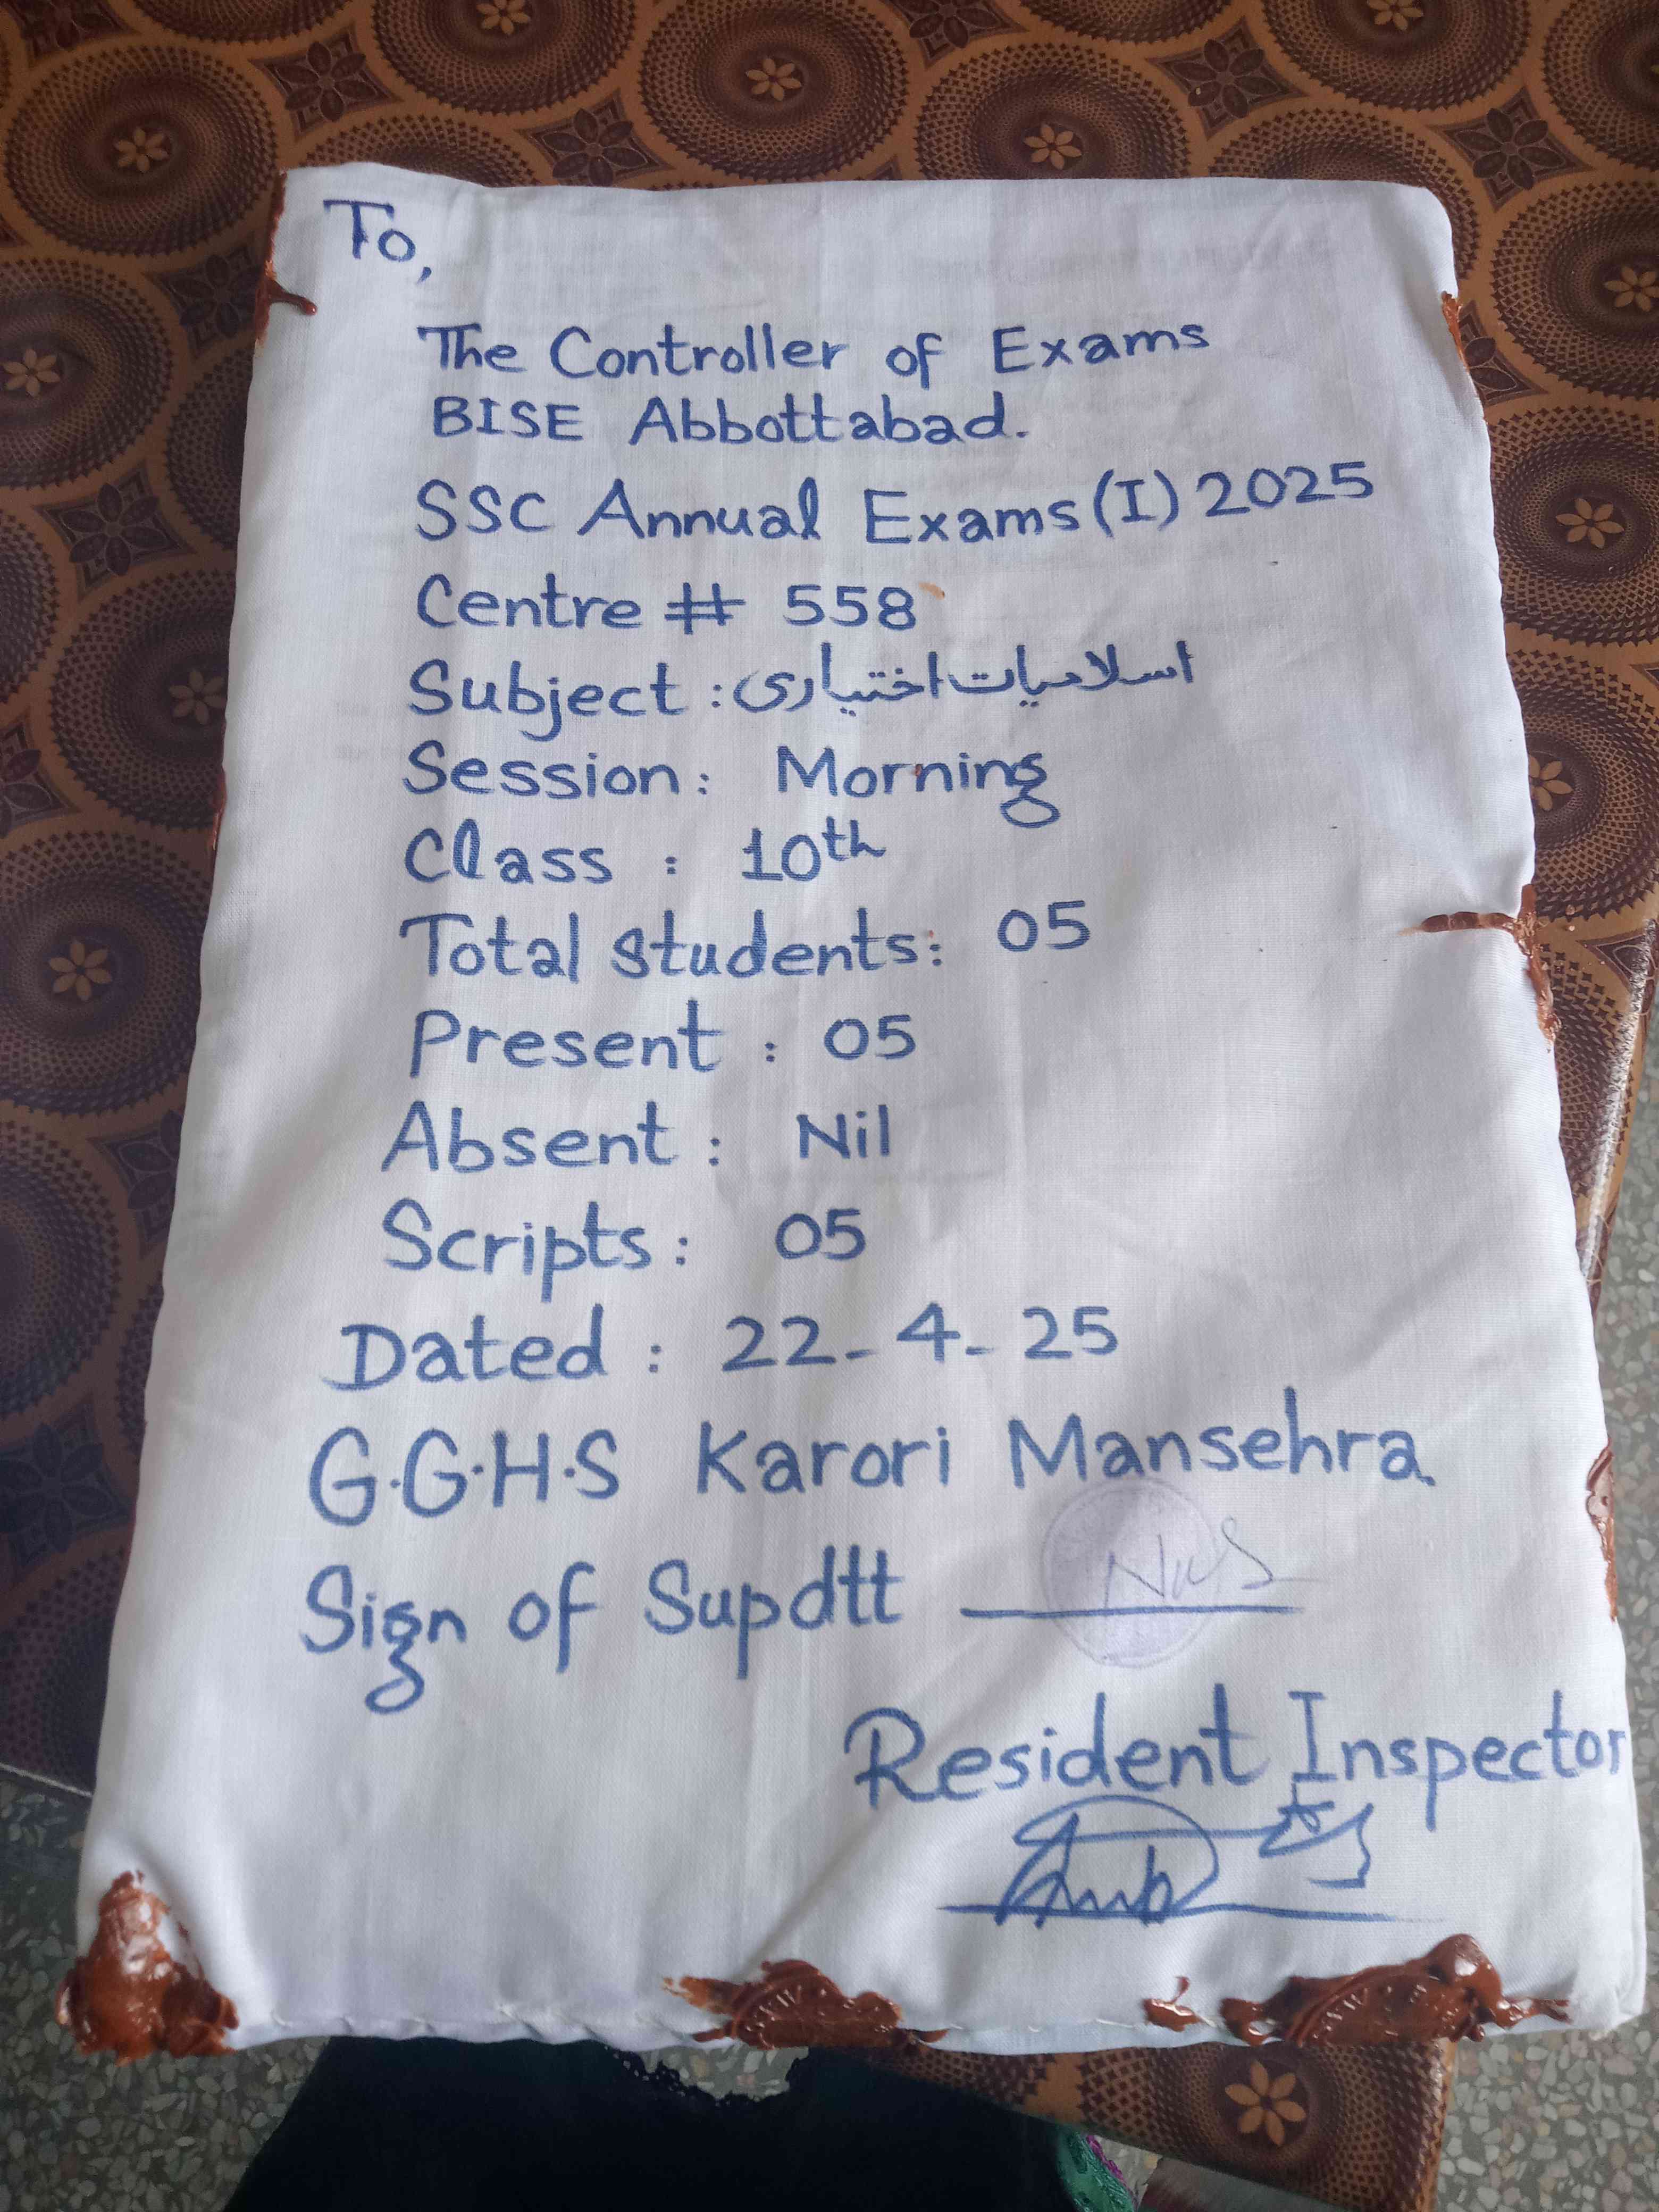 To,
The Controller of Exams
BISE Abbottabad.
SSC Annual Exams (I) 2025
Centre # 558
Subject : اسلامیات اختیاری
Session : Morning
Class : 10th
Total students : 05
Present : 05
Absent : Nil
Scripts : 05
Dated : 22-4-25
G.G.H.S Karori Mansehra
Sign of Supdtt
Resident Inspector